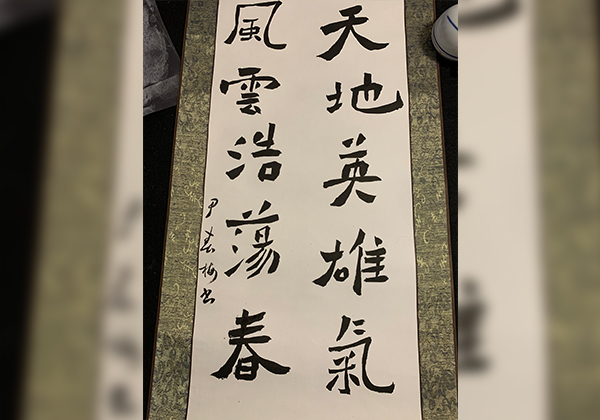 天地英雄氣
風雲浩蕩春
尹春梅書